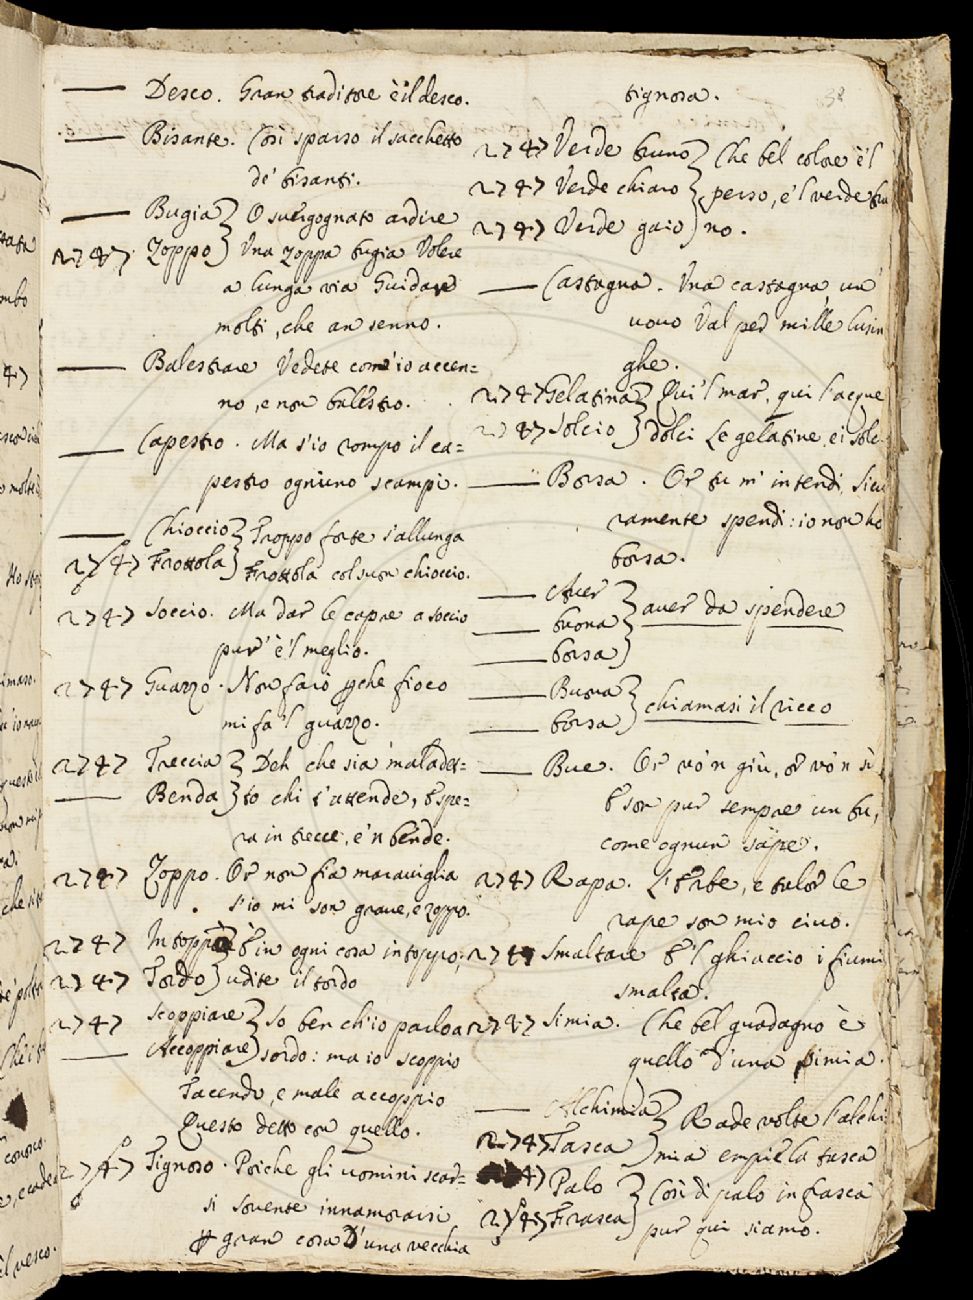 Desco. Gran traditore è il desco.
Bisante. Così sparso il sacchetto
de' bisanti.
Bugia } O suergognato ardire
2747. Zoppo } Vna zoppa bugia Volere
a lunga via Guidare
molti, che an senno.
Balestrare Vedete com'io accen=
no, e non balestro.
Capestro. Ma s'io rompo il ca=
pestro ogniuno scampi.
Chioccio } Troppo forte s'allunga
2747 Frottola } Frottola col suon chioccio.
2747 Soccio. Ma dar le capre a soccio
pur' è 'l meglio.
2747 Guazzo. Non farò che fioco
mi fa 'l guazzo.
2747 Treccia } Deh che sia maladet=
Benda } to chi t'attende, e spe=
ra in trecce, e 'n bende.
2747 Zoppo. Or non fia marauiglia
s'io mi son graue, e zoppo.
2747 Intoppo } E in ogni cosa intoppo;
2747 Tordo } udite il tordo
2747 Scoppiare } So ben ch'io parlo a
Accoppiare } sordo: ma io scoppio
Tacendo, e male accoppio
Questo detto con quello.
2747 Tignoso. Poiche gli uomini scar=
si souente innamorarsi
gran cosa D'una vecchia
tignosa.
2747 Verde bruno } Che bel colore è 'l
2747 Verde chiaro } perso, e 'l verde bru
2747 Verde gaio } no.
Castagna. Vna castagna, un
uouo Val per mille lusin
ghe.
2747 Gelatina } Qui 'l mar, qui l'acque
2747 Solcio } dolci Le gelatine, ei solci
Borsa. Or tu m'intendi, sicu
ramente spendi: io non ho
borsa.
Auer
buona } auer da spendere
borsa
Buona } chiamasi il ricco
borsa
Bue. Or vo 'n giù, or vo 'n sù
E son pur sempre un bu,
come ognun sape.
2747 Rapa. L'Erbe, e talor le
rape son mio ciuo.
2747 Smaltare E 'l ghiaccio i fiumi
smalta.
2747 Simia. Che bel guadagno è
quello d'una simia.
Alchimia } Rade volte l'alchi
2747 Tasca } mia empie la tasca
47 Palo } Così di palo in frasca
2747 Frasca } pur qui siamo.